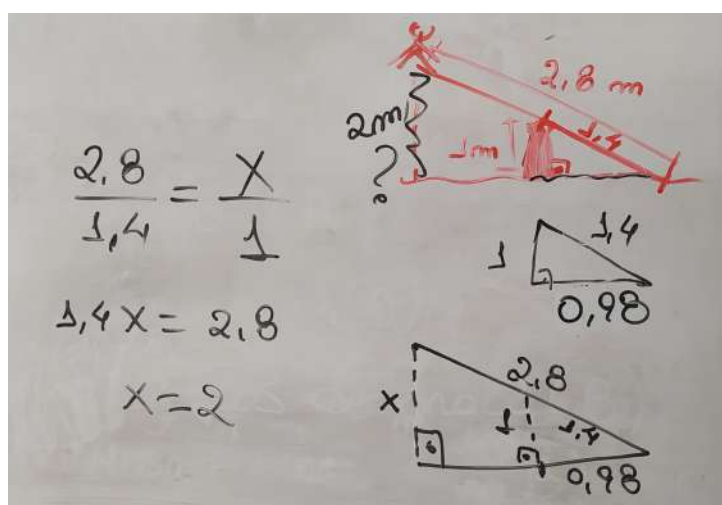 2,8/1,4 = X/1
1,4 X = 2,8
X = 2
2,8 m
2m
?
1m
1,4
1
1,4
0,98
2,8
X
1
1,4
0,98